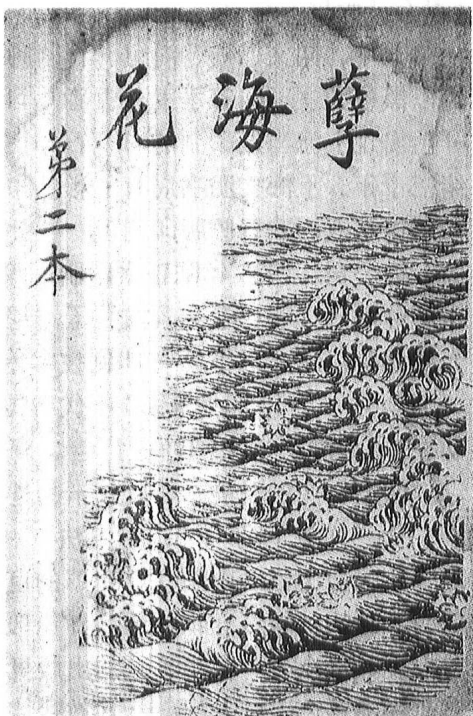 孽海花
第二本